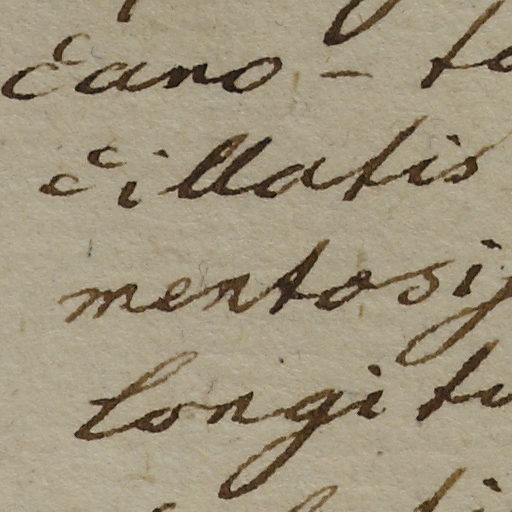 cano - to
cillatis
mentosi
longitu